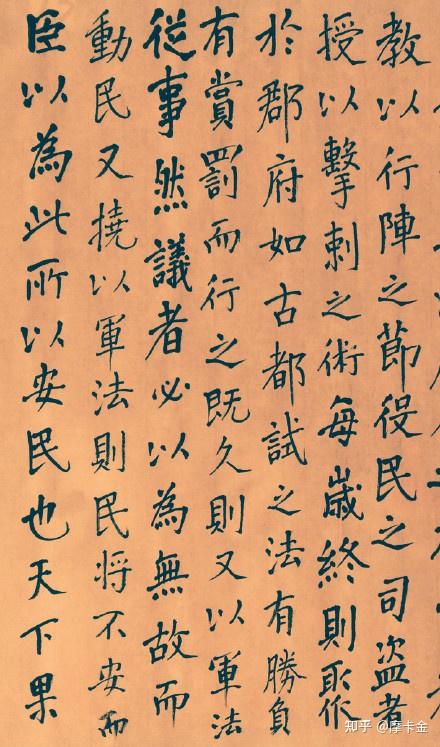 教以行陣之節役民之司盜者
授以擊刺之術每歲終則聚
於郡府如古都試之法有勝負
有賞罰而行之既久則又以軍法
從事然議者必以為無故而
動民又撓以軍法則民將不安而
臣以為此所以安民也天下果
知乎 @摩卡金